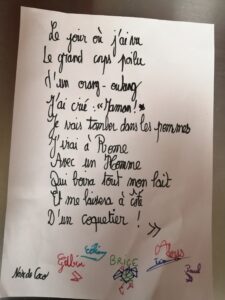 Le jour où j'ai vu
Le grand corps poilu
d'un orang-outang
J'ai crié : "Maman !"
Je vais tomber dans les pommes
J'irai à Rome
Avec un Homme
Qui boira tout mon lait
Et me laissera à côté
D'un coquetier !
BRICE
Alexis
Noix de Coco